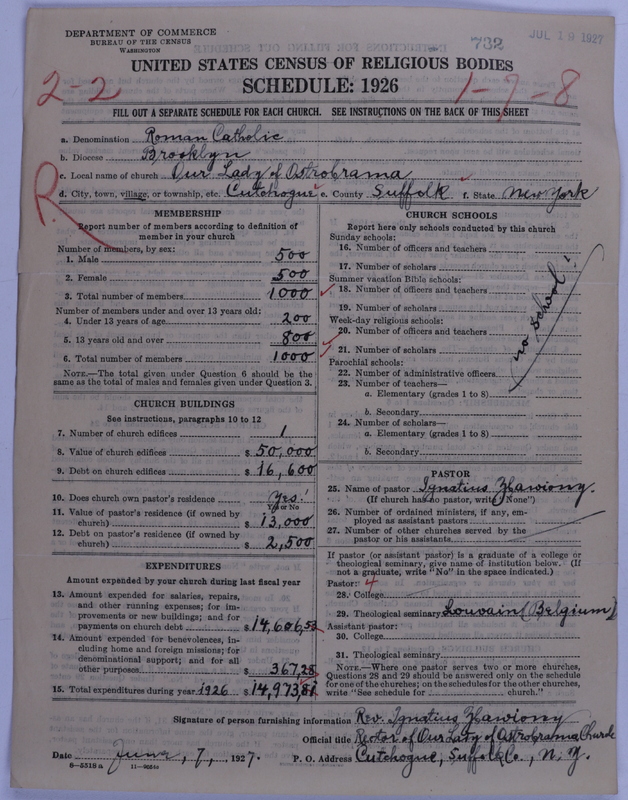 DEPARTMENT OF COMMERCE
BUREAU OF THE CENSUS
WASHINGTON
732
JUL 19 1927
UNITED STATES CENSUS OF RELIGIOUS BODIES
SCHEDULE: 1926
2-2
1-7-8
FILL OUT A SEPARATE SCHEDULE FOR EACH CHURCH. SEE INSTRUCTIONS ON THE BACK OF THIS SHEET
a. Denomination Roman Catholic
b. Diocese Brooklyn
c. Local name of church Our Lady of Ostrobrama
d. City, town, village, or township, etc. Cutchogue e. County Suffolk f. State New York
R
MEMBERSHIP
Report number of members according to definition of member in your church
Number of members, by sex:
1. Male 500
2. Female 500
3. Total number of members 1000
Number of members under and over 13 years old:
4. Under 13 years of age 200
5. 13 years old and over 800
6. Total number of members 1000
NOTE.—The total given under Question 6 should be the same as the total of males and females given under Question 3.
CHURCH BUILDINGS
See instructions, paragraphs 10 to 12
7. Number of church edifices 1
8. Value of church edifices $ 50,000
9. Debt on church edifices $ 16,600
10. Does church own pastor's residence Yes!
Yes or No
11. Value of pastor's residence (if owned by church) $ 13,000
12. Debt on pastor's residence (if owned by church) $ 2,500
EXPENDITURES
Amount expended by your church during last fiscal year
13. Amount expended for salaries, repairs, and other running expenses; for improvements or new buildings; and for payments on church debt $ 14,606,53
14. Amount expended for benevolences, including home and foreign missions; for denominational support; and for all other purposes $ 367,28
15. Total expenditures during year 1926 $ 14,973,81
CHURCH SCHOOLS
Report here only schools conducted by this church
Sunday schools:
16. Number of officers and teachers
17. Number of scholars
Summer vacation Bible schools:
18. Number of officers and teachers
19. Number of scholars
Week-day religious schools:
20. Number of officers and teachers
21. Number of scholars
Parochial schools:
22. Number of administrative officers
23. Number of teachers—
a. Elementary (grades 1 to 8)
b. Secondary
24. Number of scholars—
a. Elementary (grades 1 to 8)
b. Secondary
no school!
PASTOR
25. Name of pastor Ignatius Zhawiony.
(If church has no pastor, write "None")
26. Number of ordained ministers, if any, employed as assistant pastors
27. Number of other churches served by the pastor or his assistants
If pastor (or assistant pastor) is a graduate of a college or theological seminary, give name of institution below. (If not a graduate, write "No" in the space indicated.)
Pastor: 4
28. College
29. Theological seminary Louvain (Belgium)
Assistant pastor:
30. College
31. Theological seminary
NOTE.—Where one pastor serves two or more churches, Questions 28 and 29 should be answered only on the schedule for one of the churches; on the schedules for the other churches, write "See schedule for church."
Signature of person furnishing information Rev. Ignatius Zhawiony
Official title Rector of Our Lady of Ostrobrama Church
Date June, 7, 1927. P. O. Address Cutchogue, Suffolk Co., N. Y.
8—5518 a